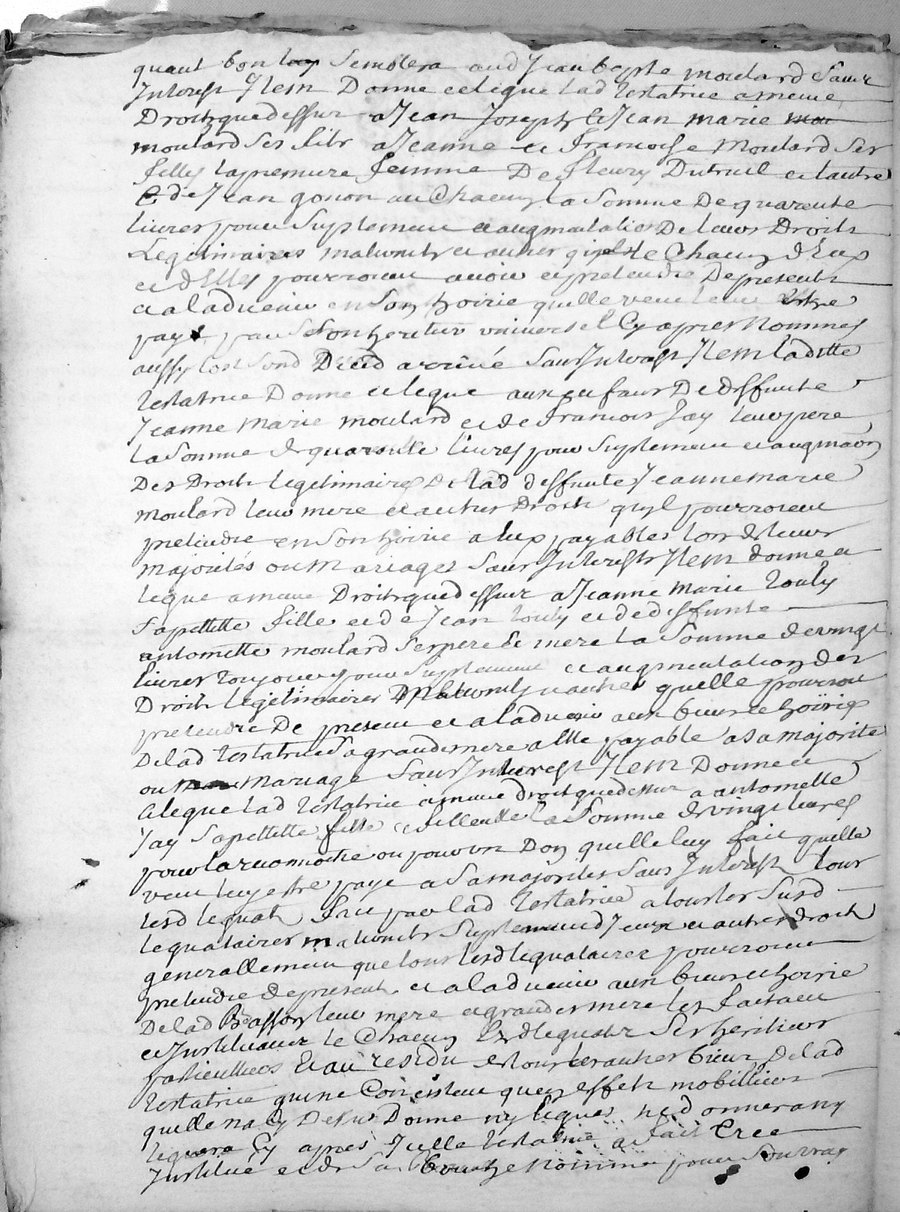 quant bon luy semblera aud Jean bapte moulard Sans
Interest Item Donne et legue lad testatrice a meme
Droit que dessur a Jean Joseph et Jean marie
moulard Ses fils a Jeanne et francoise Moulard Ses
filles la premiere femme De fleury Dutreuil et lautre
de Jean gonon au Chacun la Somme De quarente
livres pour Suplement et augmatation De leurs Droits
Legitimaires maternels et autres quils le Chacun deux
et delles pourroient avoir et pretendre De present
et a ladvenir en Son hoirie quelle veut leur estre
paye par Son heritier universel Cy apres Nommes
aussy tost Sond Deced arrivé Sans Interest Item laditte
testatrice Donne et legue aux enfans De deffunte
Jeanne Marie moulard et de francois Jay leur pere
la Somme de quarante livres pour Suplement et augmaon
Des Droits legitimaires de lad deffunte Jeanne marie
moulard leur mere et autres Droits quil pourroient
pretendre en Son hoirie a eux payables lors de leurs
majorités ou Mariages Sans Interests Item donne et
legue a meme Droit que dessur a Jeanne Marie touly
Sa petitte fille et de Jean touly et de deffunte
antoinette moulard Ses pere et mere la Somme de vingt
livres toujours pour Suplement et augmentation des
Droits legitimaires Maternels et autres quelle pourroit
pretendre De present et a ladvenir aux biens et hoiries
De lad testatrice Sa grande mere a elle payable a Sa majorité
ou mariage Sans Interest Item Donne et
a legue lad testatrice a meme Droit que dessur a antoinette
Jay Sa petitte fille et filleulle la Somme de vingt livres
pour la reconnoitre ou pour un Don quelle luy fait quelle
veut luy estre paye a Sa majorites Sans Interest tous
lesd legats faits par lad testatrice a tous les Susd
legataires maternels Suplement d Iceux et autres droits
generallement que tous lesd legataires pourroient
pretendre de present et a ladvenir aux biens et hoirie
De lad Basson leur mere et grandes mere les faisant
et Instituant le Chacun lesd legats Ses heritiers
particulliers Et au residu de tous les autres biens De lad
testatrice quine Consistent quen effets mobilliers
quelle na Cy Desus Donne ny legues ne donnera ny
leguera Cy apres Icelle testatrice a fait Cree
Institue et de Sa bouche nommé pour Son vray